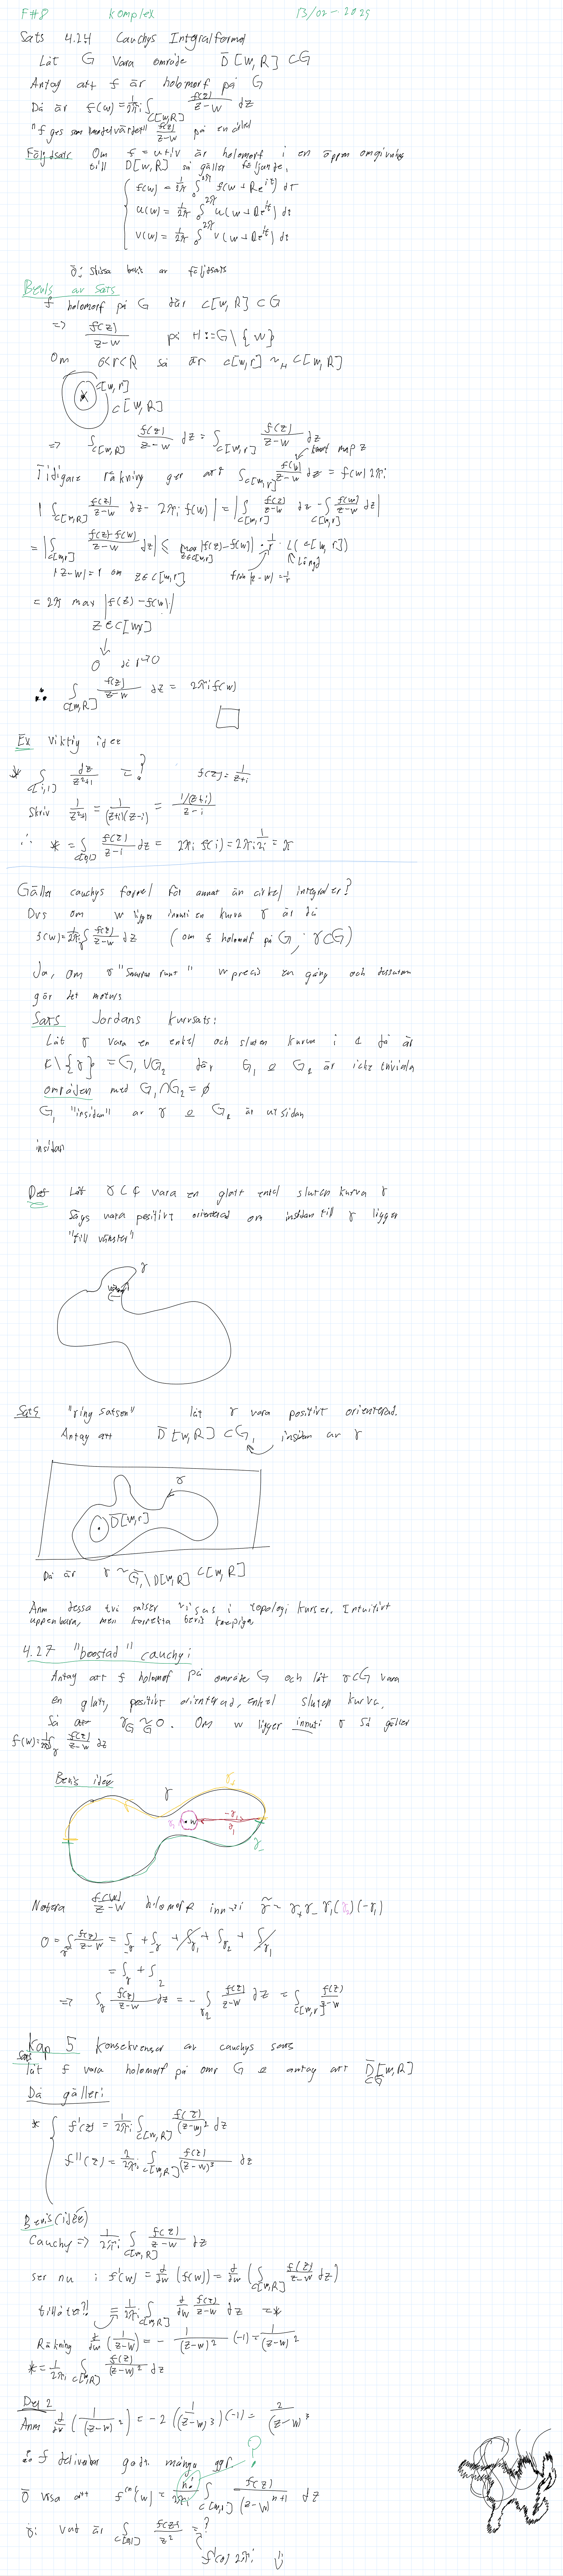 F#8 Komplex 13/02-2025
Sats 4.24 Cauchys Integralformel
Låt G vara område D̄[w,R] ⊂ G
Antag att f är holomorf på G
Då är f(w) = 1/2πi ∫_C[w,R] f(z)/(z-w) dz
"f ges som medelvärdet" f(z)/(z-w) på en cirkel
Följdsats Om f = u+iv är holomorf i en öppen omgivning
till D[w,R] så gäller följande,
f(w) = 1/2π ∫_0^2π f(w + Re^it) dt
u(w) = 1/2π ∫_0^2π u(w + Re^it) dt
v(w) = 1/2π ∫_0^2π v(w + Re^it) dt
ö: Skissa bevis av följdsats
Bevis av Sats
f holomorf på G där C[w,R] ⊂ G
=> f(z)/(z-w) på H := G\{w}
Om 0<r<R så är C[w,r] ~_H C[w,R]
C[w,r]
C[w,R]
=> ∫_C[w,R] f(z)/(z-w) dz = ∫_C[w,r] f(z)/(z-w) dz
Tidigare räkning ger att ∫_C[w,r] f(w)/(z-w) dz = f(w) 2πi
|∫_C[w,R] f(z)/(z-w) dz - 2πi f(w)| = |∫_C[w,r] f(z)/(z-w) dz - ∫_C[w,r] f(w)/(z-w) dz|
= |∫_C[w,r] f(z)-f(w)/(z-w) dz| ≤ max_z∈C[w,r] |f(z)-f(w)| · 1/r · L(C[w,r])
|z-w|=r om z∈C[w,r]
längd
= 2π max |f(z)-f(w)|
z∈C[w,r]
↓
0 då r→0
∴ ∫_C[w,R] f(z)/(z-w) dz = 2πi f(w)
□
Ex Viktig idee
* ∫_C[i,1] dz/(z²+1) = ? f(z) = 1/(z+i)
Skriv 1/(z²+1) = 1/((z+i)(z-i)) = (1/(z+i))/(z-i)
∴ * = ∫_C[i,1] f(z)/(z-i) dz = 2πi f(i) = 2πi 1/2i = π
Gäller cauchys formel för annat än cirkel integraler?
Dvs om w ligger innuti en kurva γ är då
f(w) = 1/2πi ∫_γ f(z)/(z-w) dz (om f holomorf på G, γ⊂G)
Ja, om γ "snurrar runt" w precis en gång och dessutom
gör det moturs
Sats Jordans kurvsats:
Låt γ vara en enkel och sluten kurva i ℂ då är
ℂ\{γ} = G₁ ∪ G₂ där G₁ & G₂ är icke triviala
områden med G₁∩G₂ = ∅
G₁ "insidan" av γ & G₂ är utsidan
insidan
Def Låt γ⊂ℂ vara en glatt enkel sluten kurva γ
sägs vara positivt orienterad om insidan till γ ligger
"till vänster"
γ
Sats "ring satsen" låt γ vara positivt orienterad.
Antag att D̄[w,R] ⊂ G₁
insidan av γ
γ
D̄[w,r]
Då är γ ~_G₁\D[w,R] C[w,R]
Anm dessa två satser visas i topologi kurser. Intuitivt
uppenbara, men korrekta bevis knepiga
4.27 "boostad" cauchy:
Antag att f holomorf på område G och låt γ⊂G vara
en glatt, positivt orienterad, enkel sluten kurva.
Så att γ ~_G 0. Om w ligger innuti γ så gäller
f(w) = 1/2πi ∫_γ f(z)/(z-w) dz
Bevis idee
γ γ₊
γ₂ w -γ₁ γ₁ γ₋
Notera f(w)/(z-w) holomorf innuti γ̃ = γ₊γ₋γ₁(γ₂)(-γ₁)
0 = ∫_γ̃ f(z)/(z-w) = ∫_γ + ∫_γ + ∫_γ₁ + ∫_γ₂ + ∫_γ₁
= ∫_γ + ∫_2
=> ∫_γ f(z)/(z-w) dz = -∫_γ₂ f(z)/(z-w) dz = ∫_C[w,r] f(z)/(z-w)
Kap 5 Konsekvenser av cauchys sats
Sats
låt f vara holomorf på omr G & antag att D̄[w,R]
⊂G
Då gäller:
* f'(z) = 1/2πi ∫_C[w,R] f(z)/(z-w)² dz
f''(z) = 2/2πi ∫_C[w,R] f(z)/(z-w)³ dz
Bevis (idée)
Cauchy => 1/2πi ∫_C[w,R] f(z)/(z-w) dz
ser nu: f'(w) = d/dw (f(w)) = d/dw (∫_C[w,R] f(z)/(z-w) dz)
tillåtet?! = 1/2πi ∫_C[w,R] d/dw f(z)/(z-w) dz = *
Räkning d/dw (1/(z-w)) = - 1/(z-w)² (-1) = 1/(z-w)²
* = 1/2πi ∫_C[w,R] f(z)/(z-w)² dz
Del 2
Anm d/dw (1/(z-w)²) = -2 (1/(z-w)³)(-1) = 2/(z-w)³
∴ f deriverbar godt. många ggr ?
ö visa att f^(n)(w) = n!/2πi ∫_C[w,r] f(z)/(z-w)^(n+1) dz
ö: vad är ∫_C[0,1] f(z)/z² = ?
f'(0) 2πi